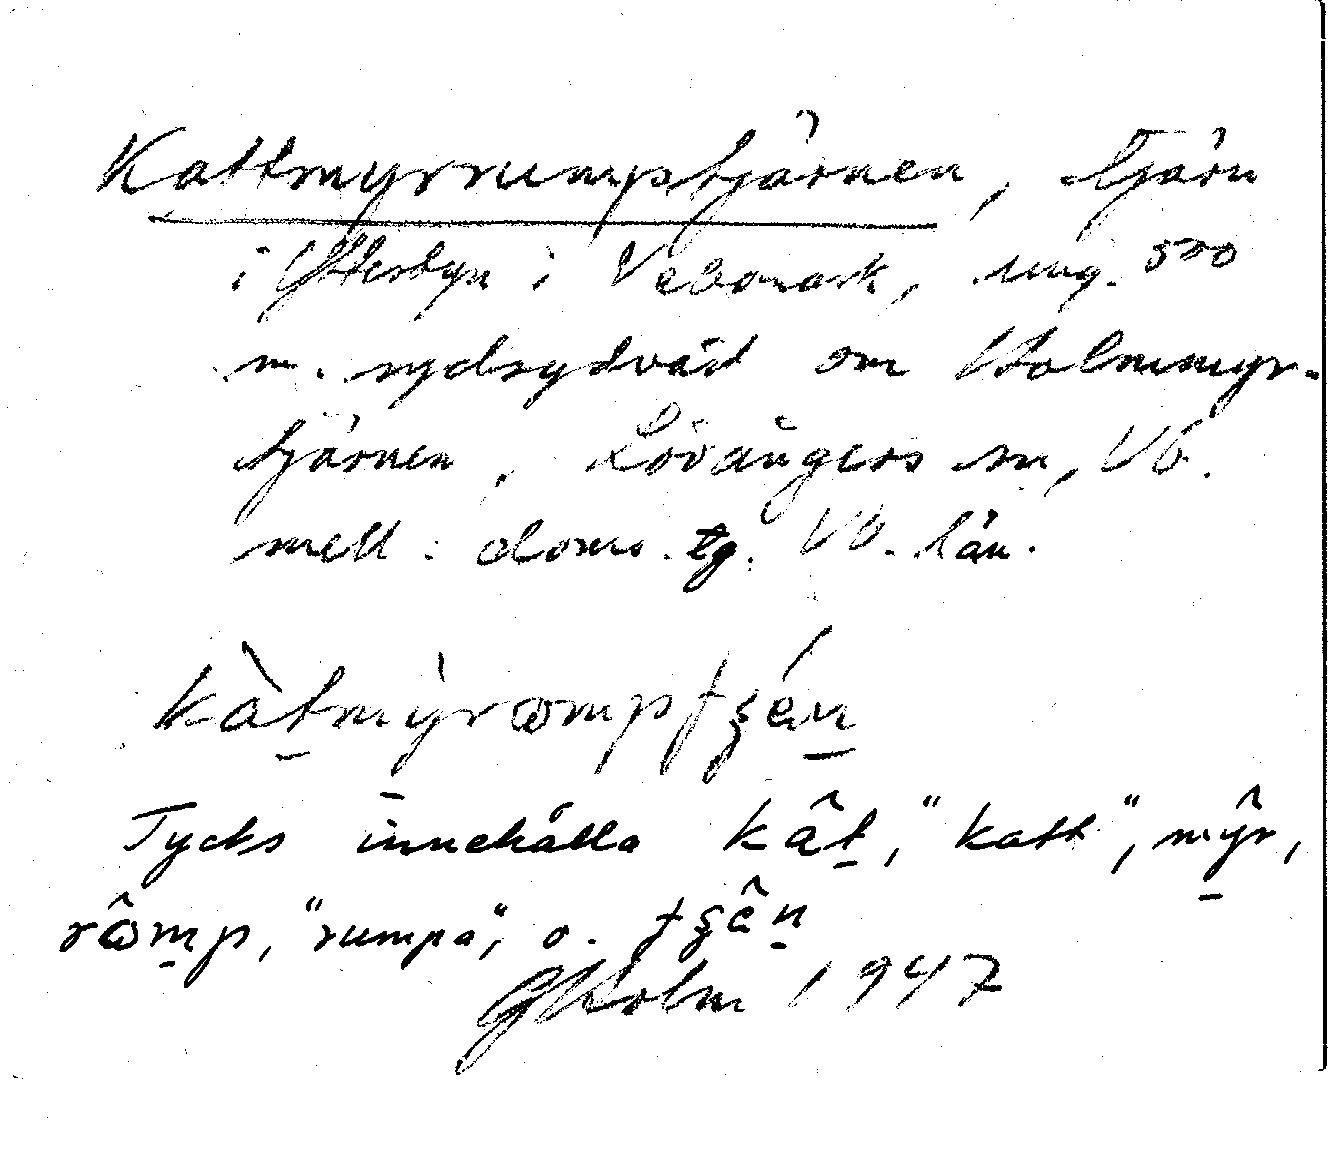 Kattmyrrumptjärnen, tjärn
i Yttesbyn i Vebomark, ung. 500
m. sydsydväst om Holmmyr-
tjärnen, Lövångers sn, Vb.
mell. doms. tg. Vb. län.
kàt̠mỳrɷmptʂén̠
Tycks innehålla kât̠, "katt", mŷr,
rɷ̂m̠p, "rumpa", o. tʂên̠
G Holm 1947